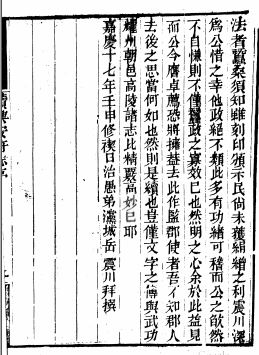 法者蠶桑須知雖刻印頒示民尚未獲絹繒之利震川深
為公惜之幸他政絕不類此多有功緒可稽而公之欿然
不自慊則不僅蠶政之寡效已也然明之心余於此益見
而公今膺卓薦恐將擁益去此作監郡使者吾不知郡人
去後之思當何如也然則是續也豈僅文字之傳與武功
耀州朝邑高陵諸志比精嚴高妙已耶
嘉慶十七年壬申修禊日治愚弟瀛城岳震川拜撰
續興安府志序